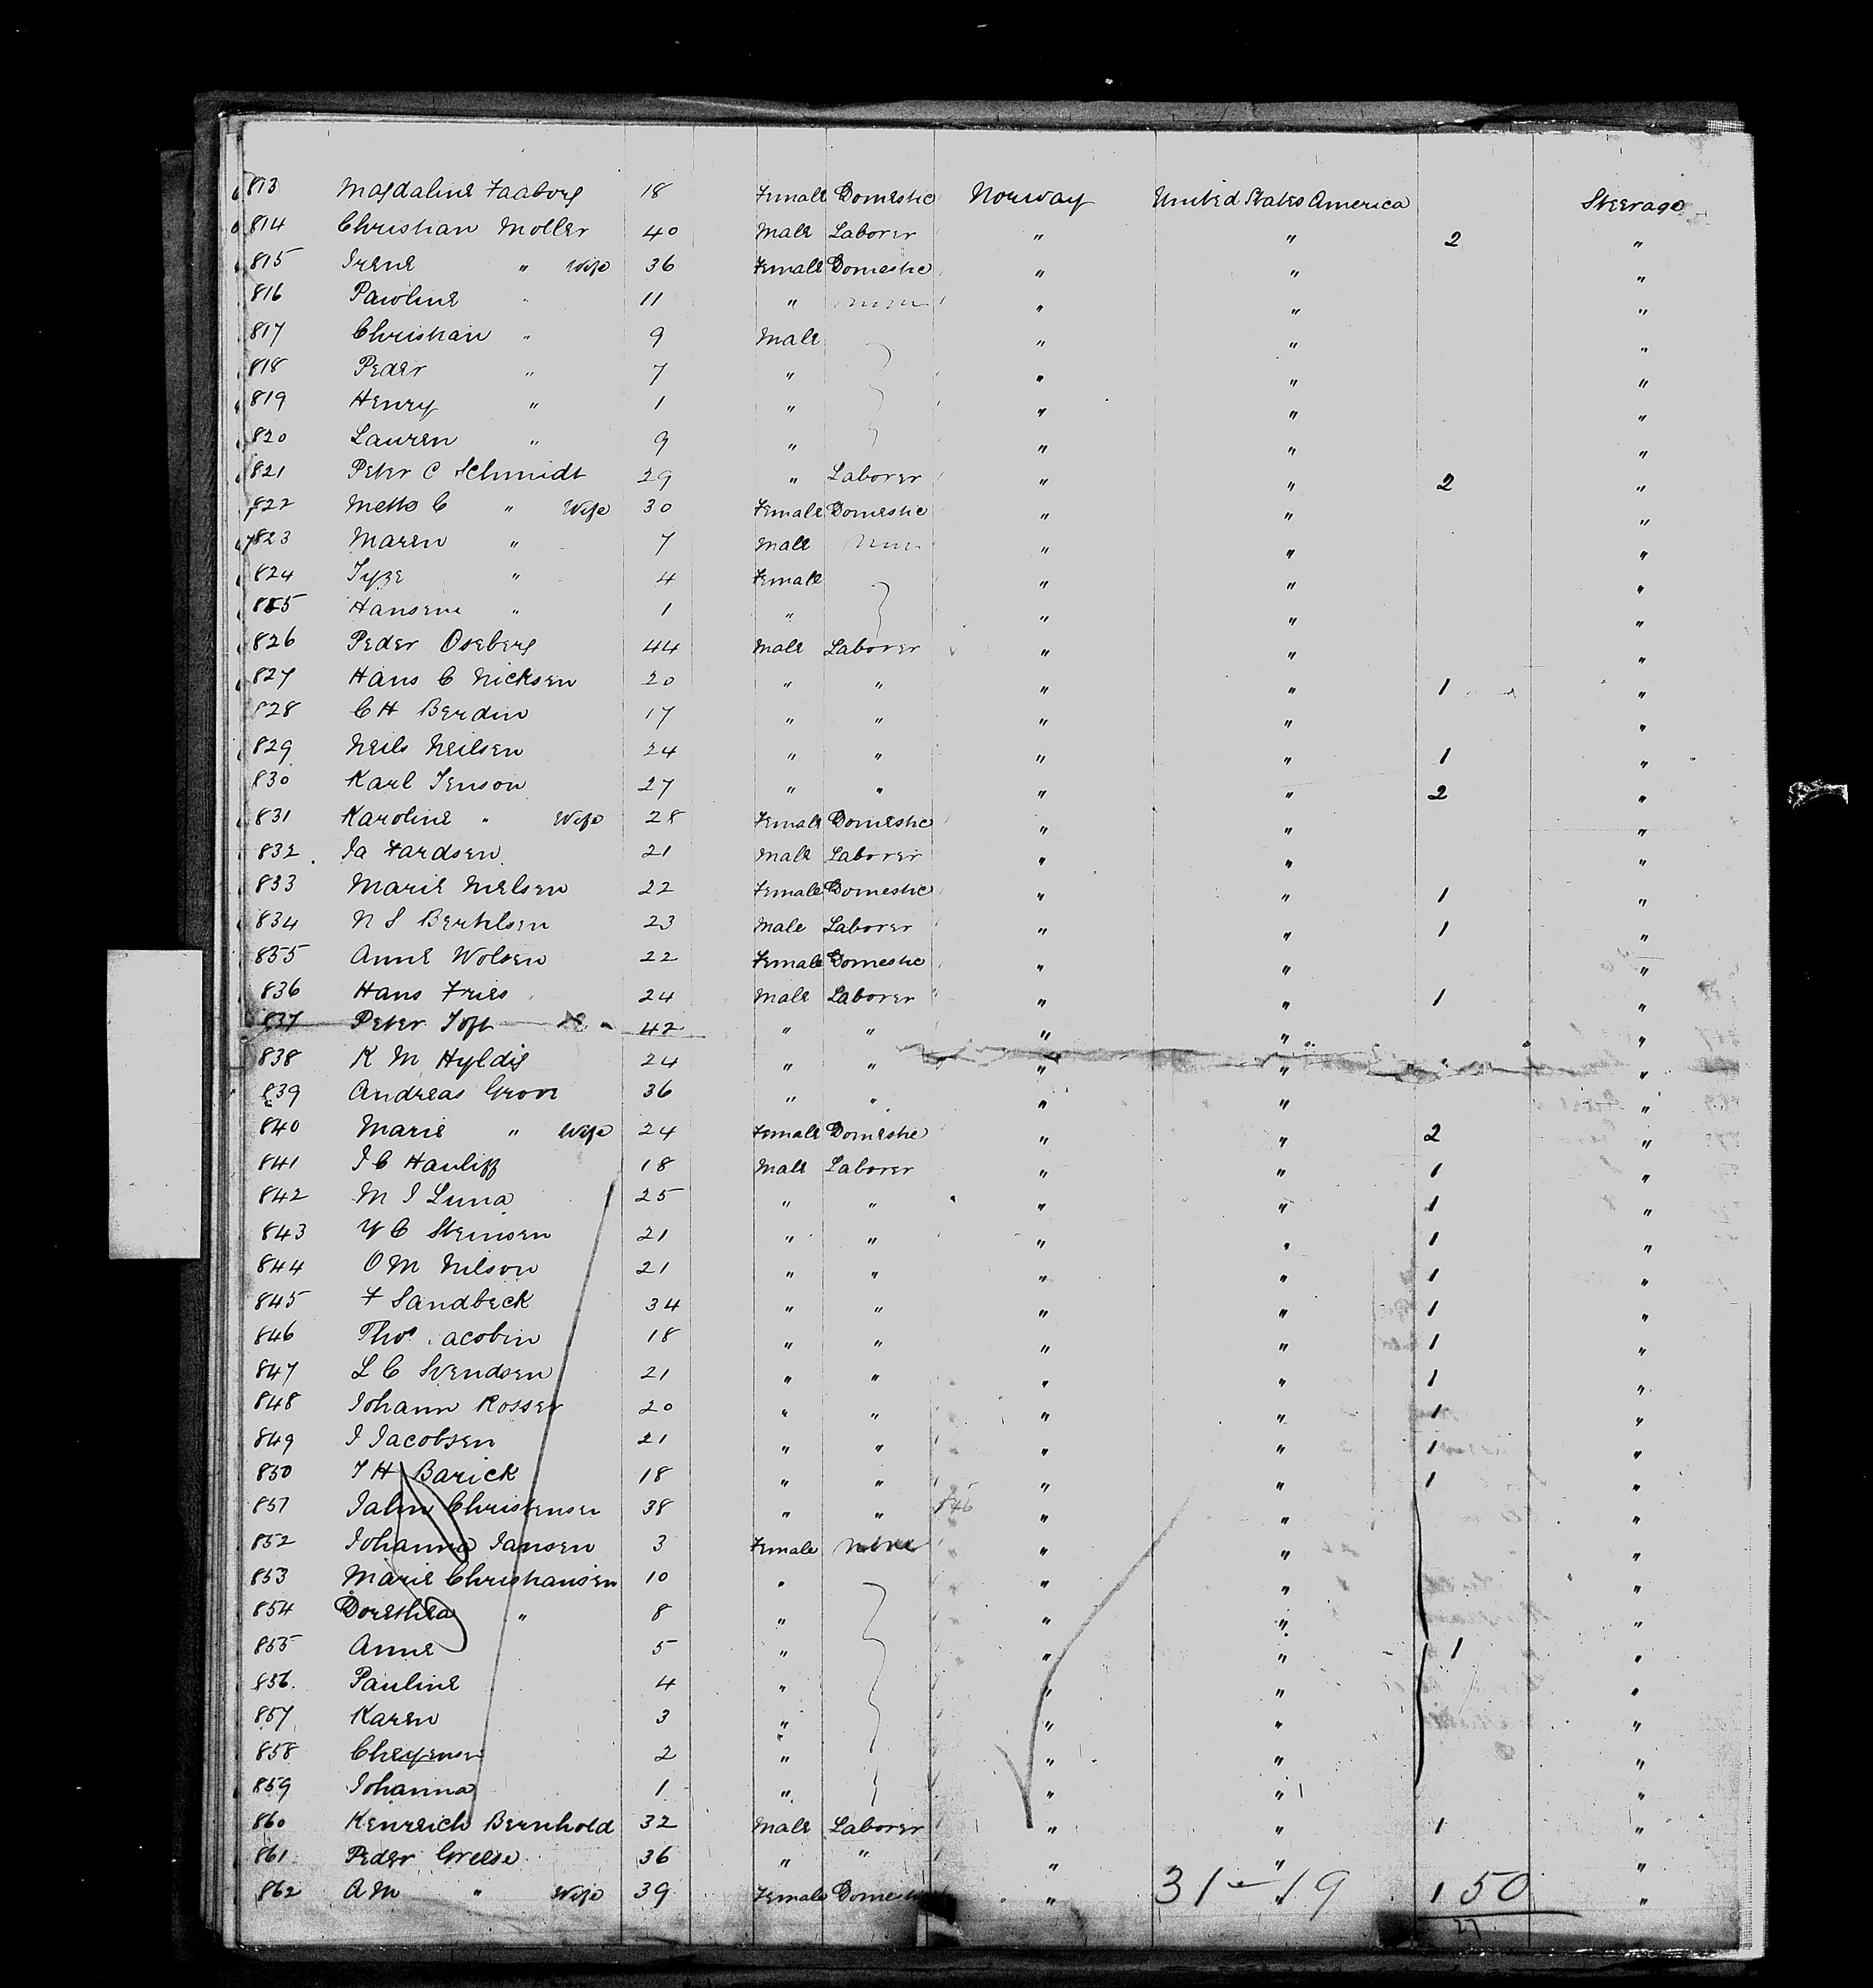 813 Magdaline Faaborg 18 Female Domestic Norway United States America Steerage
814 Christian Moller 40 Male Laborer " " 2 "
815 Irene " Wife 36 Female Domestic " " "
816 Pauline " 11 " " " "
817 Christian " 9 Male " " "
818 Peder " 7 " " " "
819 Henry " 1 " " " "
820 Lauren " 9 " " " "
821 Peter C Schmidt 29 " Laborer " " 2 "
822 Mette C " Wife 30 Female Domestic " " "
823 Maren " 7 Male " " "
824 " 4 Female " " "
825 Hansene " 1 " " " "
826 Peder Oseberg 44 Male Laborer " " "
827 Hans C Nicksen 20 " " " " 1 "
828 C H Berdin 17 " " " " "
829 Neils Neilsen 24 " " " " 1 "
830 Karl Jenson 27 " " " " 2 "
831 Karoline " Wife 28 Female Domestic " " "
832 Ja Fardsen 21 Male Laborer " " "
833 Marie Nielsen 22 Female Domestic " " 1 "
834 N S Berthlsen 23 Male Laborer " " 1 "
835 Anne Wolsen 22 Female Domestic " " "
836 Hans Fries 24 Male Laborer " " 1 "
837 Peter Toft 42 " " " " "
838 K M Hyldig 24 " " " " "
839 Andreas Grove 36 " " " " "
840 Marie " Wife 24 Female Domestic " " 2 "
841 J C 18 Male Laborer " " 1 "
842 M J Luna 25 " " " " 1 "
843 C Steinsen 21 " " " " 1 "
844 O M Nilson 21 " " " " 1 "
845 F Sandbeck 34 " " " " 1 "
846 Thos acobin 18 " " " " 1 "
847 L C Svendsen 21 " " " " 1 "
848 Johann Rosser 20 " " " " 1 "
849 J Jacobsen 21 " " " " 1 "
850 J H Barick 18 " " " " 1 "
851 Christensen 38 " " " " "
852 Johanna Jansen 3 Female None " " "
853 Marie Christiansen 10 " " " "
854 Dorethea " 8 " " " "
855 Anne 5 " " " 1 "
856 Pauline 4 " " " "
857 Karen 3 " " " "
858 2 " " " "
859 Johanna 1 " " " "
860 Kenreich Bernhold 32 Male Laborer " " 1 "
861 Peder Grelse 36 " " " " "
862 A M " Wife 39 Female Domestic " " 1 "
31 - 19 50
27